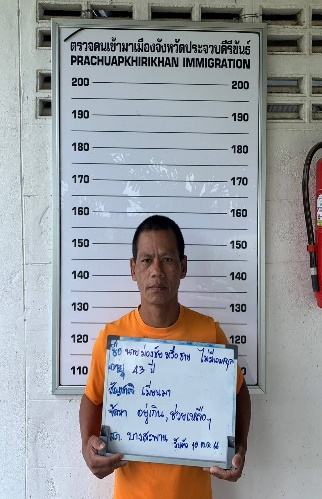 ตรวจคนเข้าเมืองจังหวัดประจวบคีรีขันธ์
PRACHUAPKHIRIKHAN IMMIGRATION
200 200
190 190
180 180
170 170
160 160
150 150
140 140
130 130
120 120
110 110
ชื่อ นาย หรือ ชาย ไม่มีนามสกุล
อายุ 43 ปี
สัญชาติ เมียนมา
อยู่เกิน, ช่วยเหลือฯ
บางสะพาน